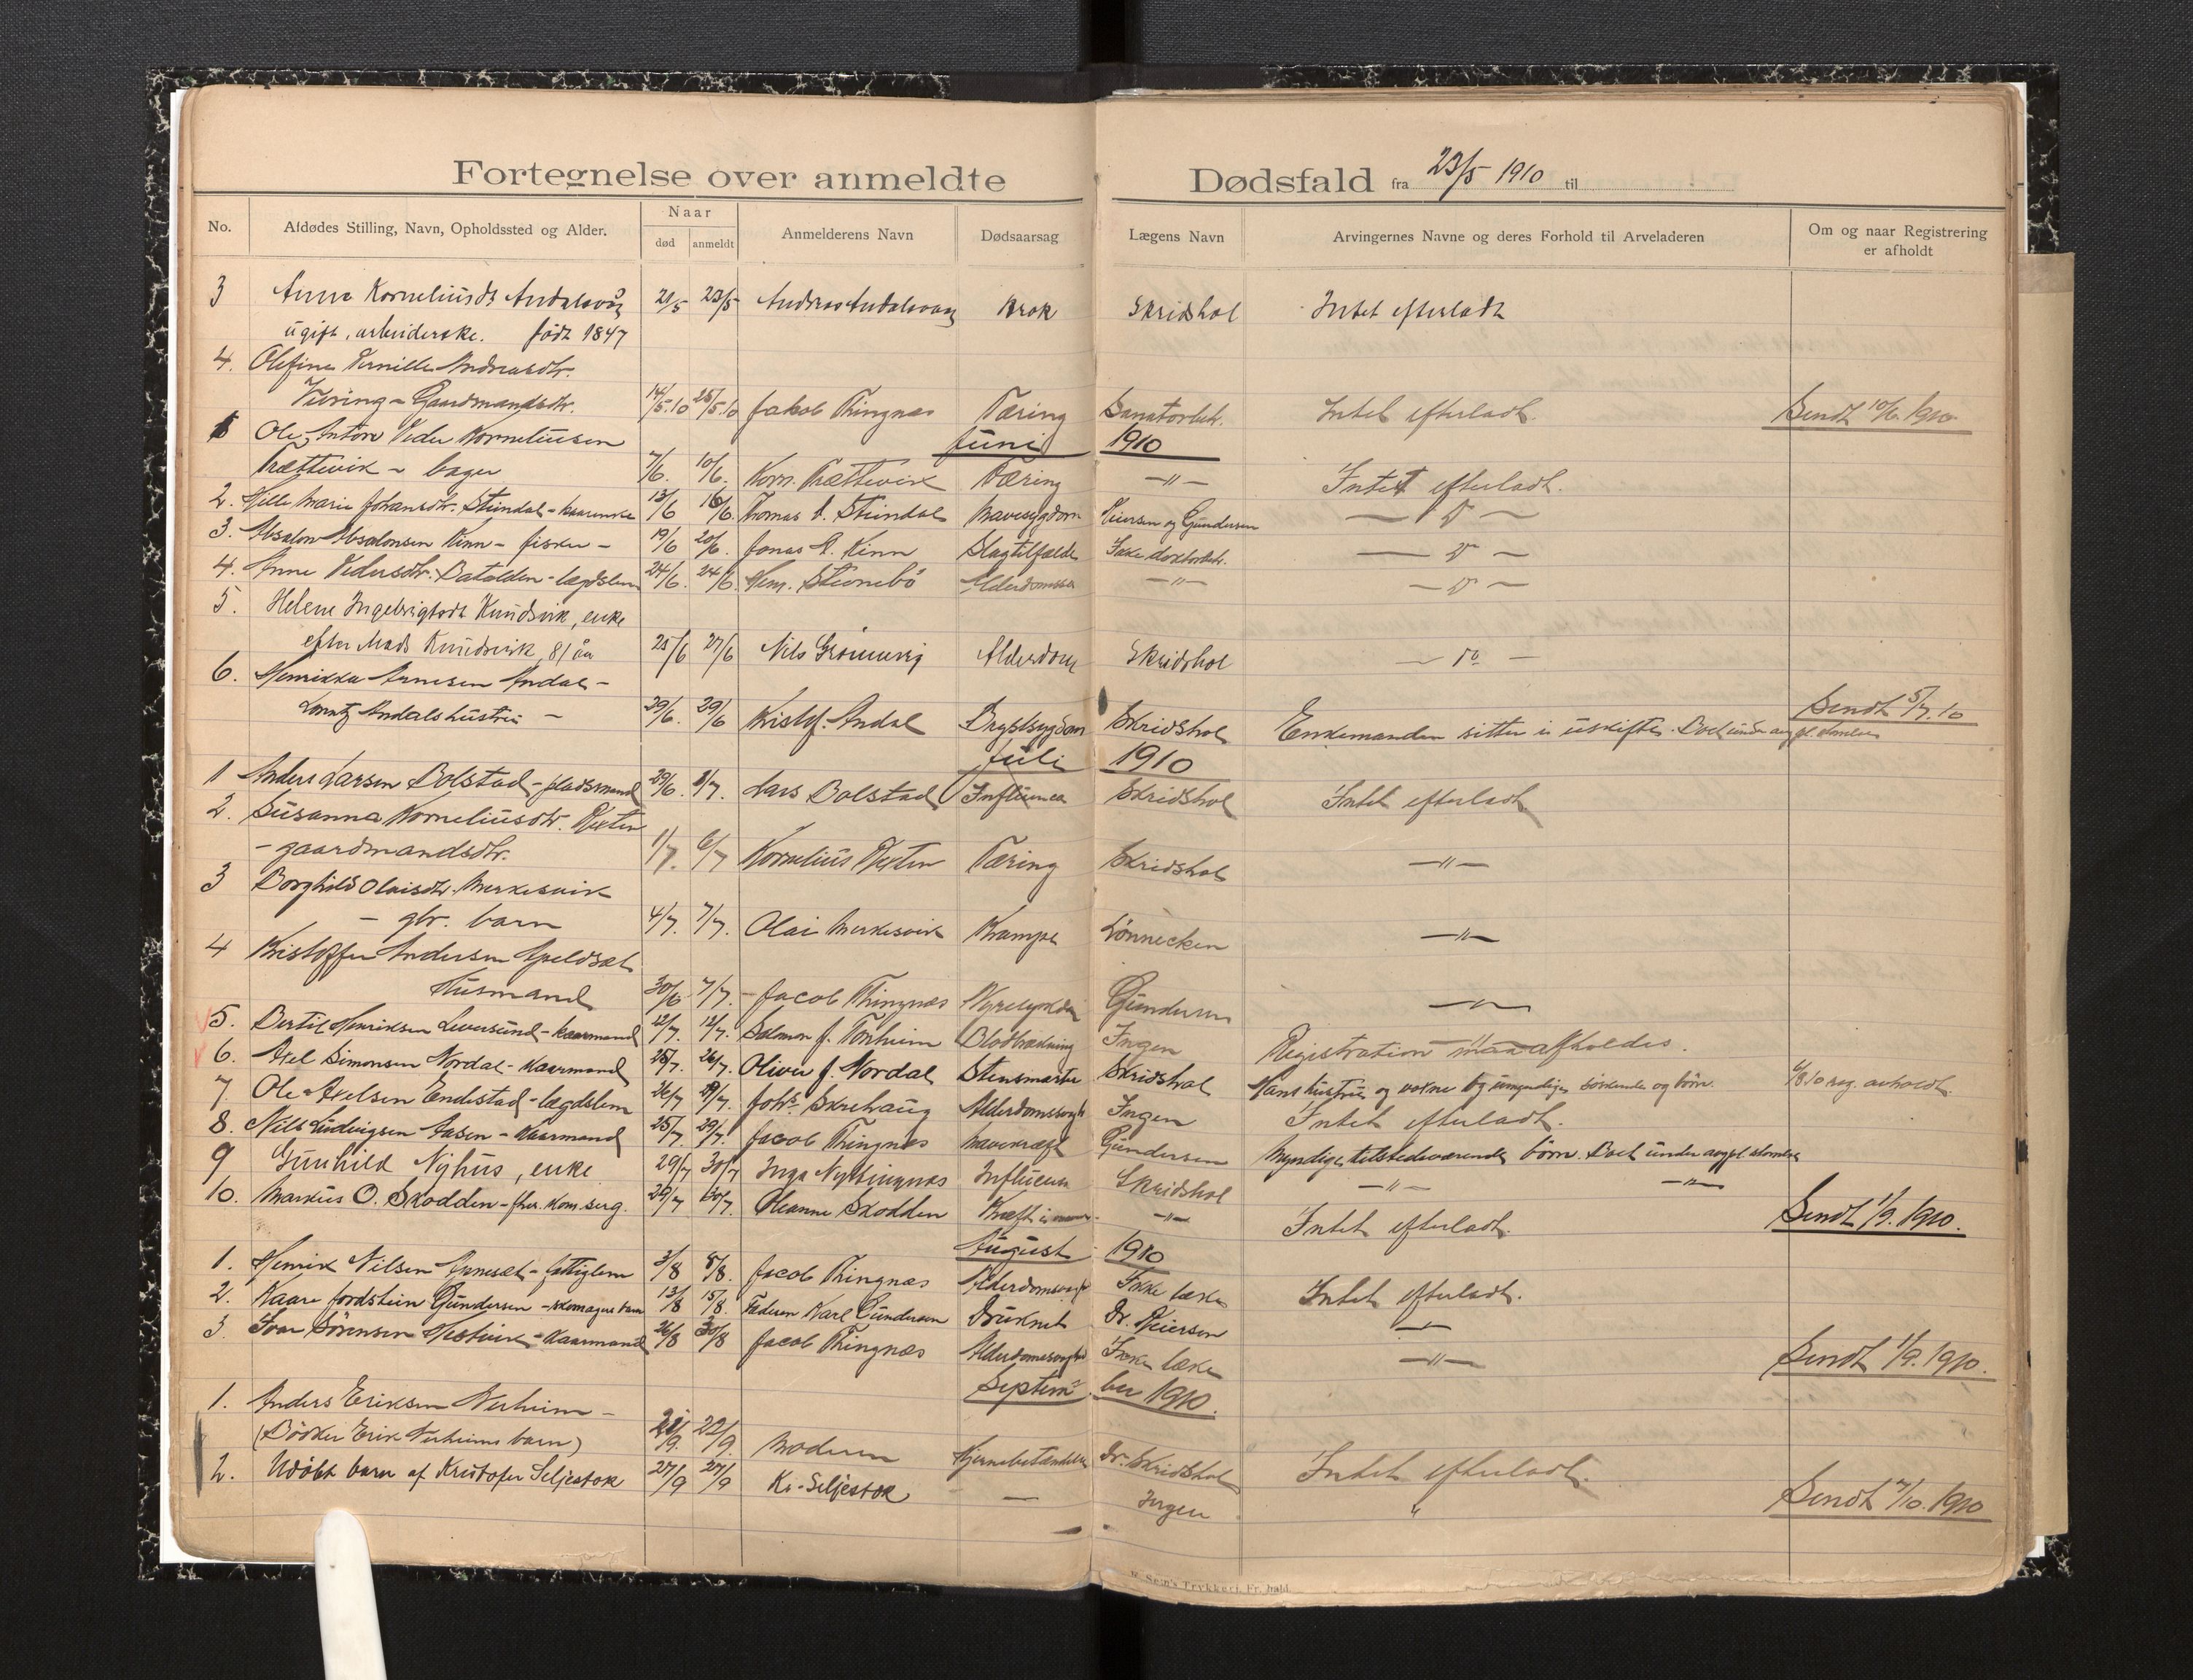 Fortegnelse over anmeldte Dødsfald fra 23/5 1910 til
No. Afdødes Stilling, Navn, Opholdssted og Alder. Naar død anmeldt Anmelderens Navn Dødsaarsag Lægens Navn Arvingernes Navne og deres Forhold til Arveladeren Om og naar Registrering er afholdt
3 Anna Korneliusdt Andalsvåg 21/5 23/5 Andreas Andalsvaag Brok Skridshol Intet efterladt
ugift, arbeiderske. født 1847
4. Olefine Pernille Andreasdtr.
Vuring - Gaardmandsdtr. 14/5.10 25/5.10 Jakob Thingnæs Tæring Sanatoriet. Intet efterladt. Sendt 10/6. 1910
Juni 1910
1 Ole Anton Peder Korneliussen
Trættevik - bager 7/6. 10/6. Korn. Trættevik Tæring -"- Intet efterladt.
2. Pille Marie Johansdtr. Steindal - kaarenke 13/6 16/6. Thomas A. Steindal Mavesygdom Peiersen og Gundersen - do -
3. Absalon Absalonsen Kinn - fisker - 19/6 20/6. Jonas A. Kinn Slagtilfælde Ikke doktorbeh. - do -
4. Anne Pedersdtr. Batalden - lægdslem 24/6. 24/6. Hem. Steinebø Alderdomssv. -"- - do -
5. Helene Ingebrigtsdt Knudsvik, enke
efter Mads Knudsvik, 81 år 25/6 27/6 Nils Grønnevig Alderdom Skridshol - do -
6. Henrikka Arnesen Andal -
Lorentz Andals hustru - 29/6. 29/6 Kristof. Andal Brystsygdom Skridshol Enkemanden sitter i uskifte. Boet under avgpl. størrelse Sendt 5/7.10
Juli 1910
1 Anders Larsen Bolstad - pladsmand 29/6. 1/7. Lars Bolstad Influenca Skridshol Intet efterladt.
2. Susanna Korneliusdtr. Hixten
- gaardmandsdtr. 1/7. 6/7 Kornelius Hixten Tæring Skridshol -"-
3 Borghild Olaisdtr. Merkesvik
- gbr. barn 4/7. 7/7. Olai Merkesvik Krampe Lönnecken -"-
4 Kristoffer Andersen Apeldsæt
Husmand 30/6 7/7. Jacob Thingnæs Nyresykdom Gundersen -"-
5. Bertil Henriksen Leversund - kaarmand 12/7. 12/7. Salomon J. Tonheim Blodbrækning Ingen Registration maa afholdes.
6. Axel Simonsen Nordal - Kaarmand 25/7. 26/7. Oliver J. Nordal Stensmerter Skridshol Hans hustru og voxne og umyndige søskende og børn. 6/8 10 reg. avholdt.
7. Ole Axelsen Endestad - lægdslem 26/7 29/7. Johs. Skrehaug Alderdomssvagh. Ingen Intet efterladt.
8. Nils Ludvigsen Aasen - Kaarmand 25/7. 29/7. Jacob Thingnæs Mavekræft Gundersen Myndige, tilstedeværende børn. Boet under avgpl. størrelse
9 Gunhild Nyhus, enke 29/7 30/7 Inga Nyttingnæs Influensa Skridshol -"- -"-
10. Markus O. Skodden - fhv. kom. serg. 29/7 30/7. Oleanne Skodden Kræft i maven. -"- Intet efterladt. Sendt 1/9. 1910.
August 1910
1. Henrik Nilsen Arnesæt - fattiglem 3/8 8/8. Jacob Thingnæs Alderdomssvagh. Ikke læke Intet efterladt.
2. Kaare Jordstein Gundersen - skomagers barn 13/8 15/8. Faderen Karl Gundersen Druknet Dr. Peiersen -"-
3. Ivar Sørensen Hestvik - Kaarmand 26/8 30/8 Jacob Thingnæs Alderdomssvaghed Ikke læke -"- Sendt 1/9. 1910.
September 1910.
1. Anders Eriksen Nerheim -
(Bødker Erik Nerheims barn) 21/9. 22/9. Moderen Hjernebetændelse Dr. Skridshol Intet efterladt.
2. Udøbt barn af Kristofer Seljestok 27/9 27/9 Kr. Seljestok - Ingen " Sendt 7/10. 1910